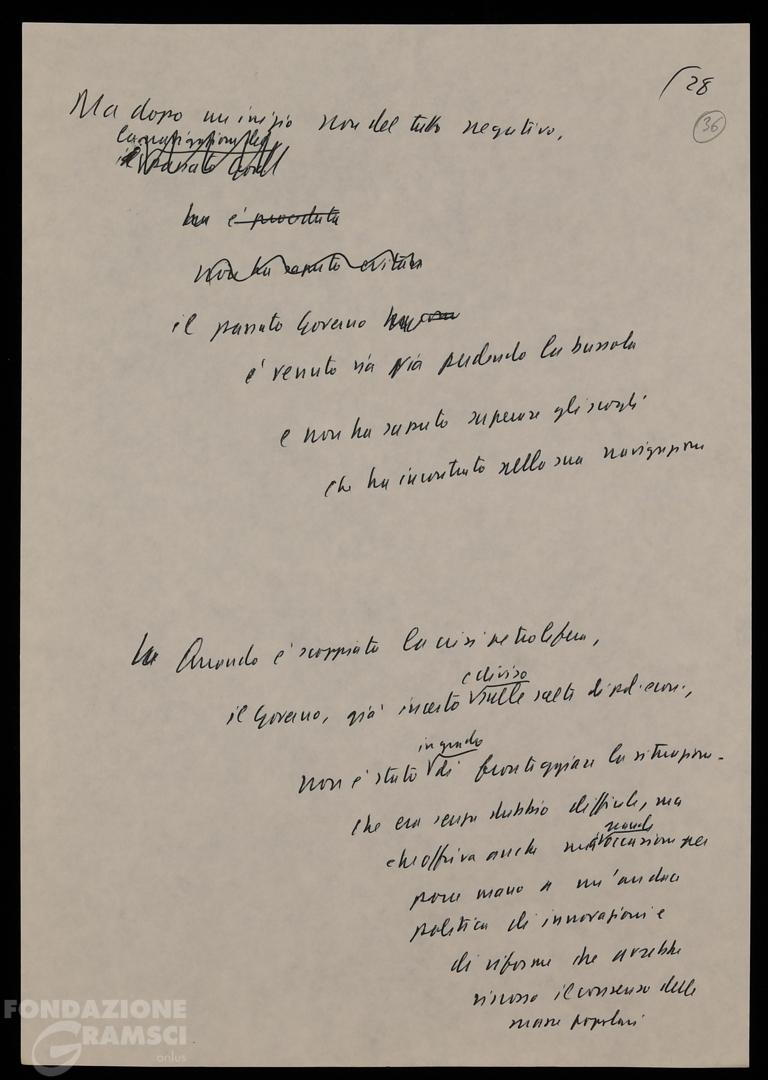 28
36
Ma dopo un inizio non del tutto negativo,
il passato Gov
è proceduta
non ha saputo evitare
il passato Governo
è venuto via via perdendo la bussola
e non ha saputo superare gli scogli
che ha incontrato nella sua navigazione
Quando è scoppiata la crisi petrolifera,
e diviso
il Governo, già incerto sulle scelte di pol. econ.,
in grado
non è stato di fronteggiare la situazione
che era senza dubbio difficile, ma
grande
che offriva anche una occasione per
porre mano a un'audace
politica di innovazioni e
di riforme che avrebbe
riscosso il consenso delle
masse popolari
FONDAZIONE
GRAMSCI
onlus